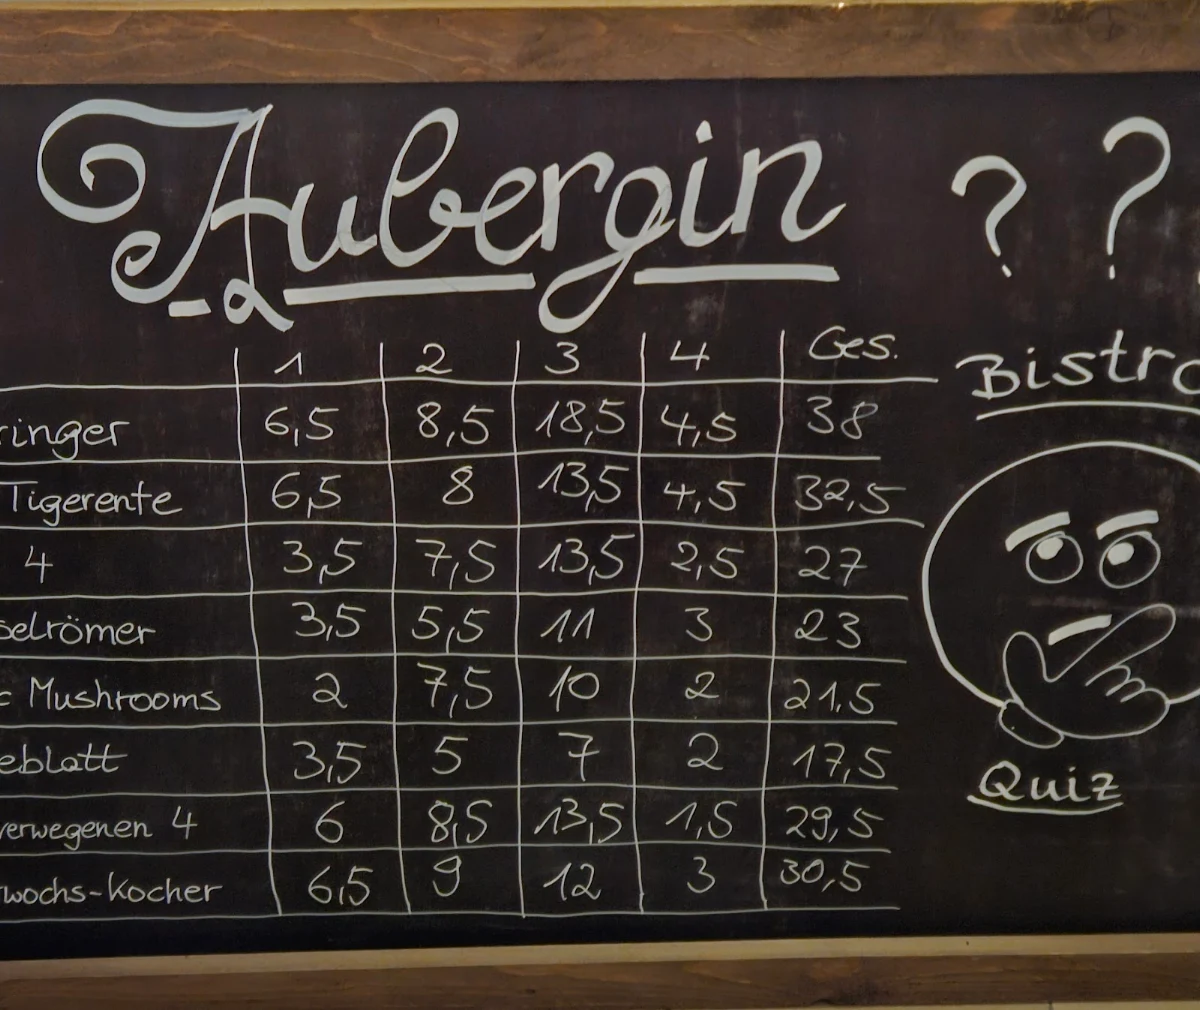 Aubergin
? ?
1 2 3 4 Ges.
ringer 6,5 8,5 18,5 4,5 38
Tigerente 6,5 8 13,5 4,5 32,5
4 3,5 7,5 13,5 2,5 27
selrömer 3,5 5,5 11 3 23
c Mushrooms 2 7,5 10 2 21,5
eblatt 3,5 5 7 2 17,5
verwegenen 4 6 8,5 13,5 1,5 29,5
wochs-Kocher 6,5 9 12 3 30,5
Bistro
Quiz